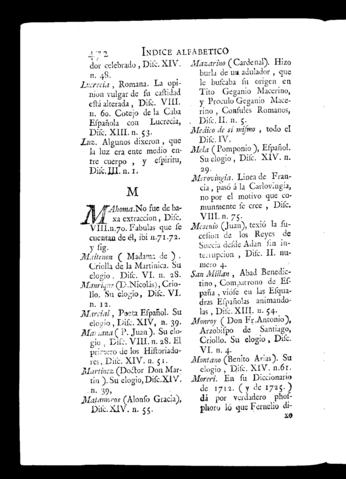 472 INDICE ALFABETICO
dor celebrado, Disc. XIV.
n. 48.
Lucrecia, Romana. La opi-
nion vulgar de su castidad
está alterada, Disc. VIII.
n. 60. Cotejo de la Caba
Española con Lucrecia,
Disc. XIII. n. 53.
Luz. Algunos dixeron, que
la luz era ente medio en-
tre cuerpo, y espiritu,
Disc. III. n. 1.
M
MAhoma. No fue de ba-
xa extraccion, Disc.
VIII. n. 70. Fabulas que se
cuentan de él, ibi n. 71. 72.
y sig.
Maitenon (Madama de).
Criolla de la Martinica. Su
elogio, Disc. VI. n. 28.
Manrique (D. Nicolás), Crio-
llo. Su elogio, Disc. VI.
n. 12.
Marcial, Poeta Español. Su
elogio, Disc. XIV, n. 39.
Mariana (P. Juan). Su elo-
gio, Disc. VIII. n. 28. El
primero de los Historiado-
res, Disc. XIV. n. 51.
Martinez (Doctor Don Mar-
tin). Su elogio, Disc. XIV.
n. 39,
Matamoros (Alonso Gracia),
Disc. XIV. n. 55.
Mazarino (Cardenal). Hizo
burla de un adulador, que
le buscaba su origen en
Tito Geganio Macerino,
y Proculo Geganio Mace-
rino, Consules Romanos,
Disc. II. n. 5.
Medico de sí mismo, todo el
Disc. IV.
Mela (Pomponio), Español.
Su elogio, Disc. XIV. n.
29.
Merovingia. Linea de Fran-
cia, pasó á la Carlovingia,
no por el motivo que co-
munmente se cree, Disc.
VIII. n. 75.
Mesenio (Juan), texió la su-
cesion de los Reyes de
Suecia desde Adan sin in-
terrupcion, Disc. II. nu-
mero 4.
San Millan, Abad Benedic-
tino, Compatrono de Es-
paña, vióse en las Esqua-
dras Españolas animando-
las, Disc. XIII. n. 54.
Monroy (Don Fr. Antonio),
Arzobispo de Santiago,
Criollo. Su elogio, Disc.
VI. n. 4.
Montano (Benito Arias). Su
elogio, Disc. XIV. n. 61.
Moreri. En su Diccionario
de 1712. (y de 1725.)
dá por verdadero phos-
phoro lo que Fernelio di-
xo